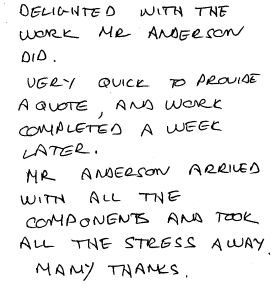 DELIGHTED WITH THE
WORK MR ANDERSON
DID.
VERY QUICK TO PROVIDE
A QUOTE, AND WORK
COMPLETED A WEEK
LATER.
MR ANDERSON ARRIVED
WITH ALL THE
COMPONENTS AND TOOK
ALL THE STRESS AWAY.
MANY THANKS.